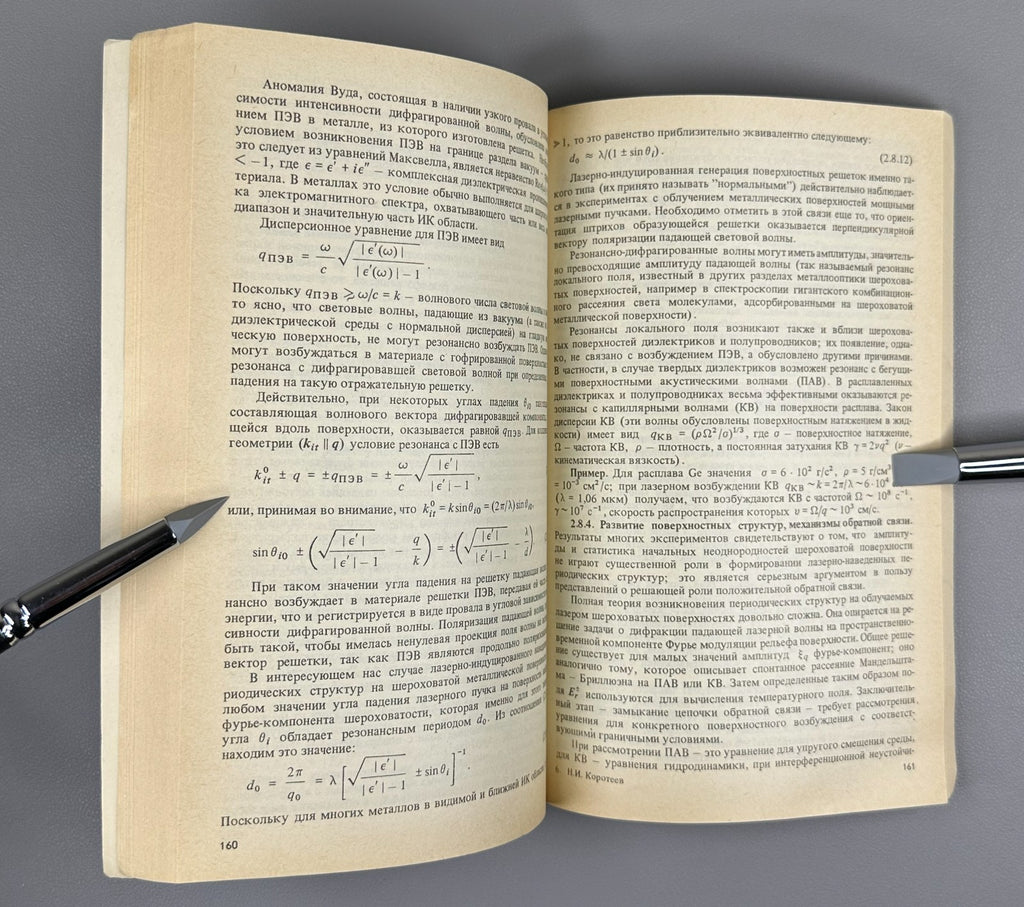 Аномалия Вуда, состоящая в наличии узкого провала в
симости интенсивности дифрагированной волны, обусловлена
нием ПЭВ в металле, из которого изготовлена решетка.
условием возникновения ПЭВ на границе раздела вакуум –
это следует из уравнений Максвелла, является неравенство
< −1, где ϵ = ϵ′ + iϵ″ – комплексная диэлектрическая
териала. В металлах это условие обычно выполняется для
ка электромагнитного спектра, охватывающего часть или
диапазон и значительную часть ИК области.
Дисперсионное уравнение для ПЭВ имеет вид
q_ПЭВ = ω/c √(|ϵ′(ω)| / (|ϵ′(ω)| − 1)).
Поскольку q_ПЭВ ⩾ ω/c = k – волнового числа световой волны
то ясно, что световые волны, падающие из вакуума (а
диэлектрической среды с нормальной дисперсией) на
ческую поверхность, не могут резонансно возбуждать ПЭВ.
могут возбуждаться в материале с гофрированной
резонанса с дифрагировавшей световой волной при
падения на такую отражательную решетку.
Действительно, при некоторых углах падения θ_i0
составляющая волнового вектора дифрагировавшей
щейся вдоль поверхности, оказывается равной q_ПЭВ. Для
геометрии (k_it ∥ q) условие резонанса с ПЭВ есть
k⁰_it ± q = ±q_ПЭВ = ± ω/c √(|ϵ′| / (|ϵ′| − 1)),
или, принимая во внимание, что k⁰_it = k sin θ_i0 = (2π/λ) sin θ_i0,
sin θ_i0 ± (√(|ϵ′| / (|ϵ′| − 1)) − q/k) = ±(√(|ϵ′| / (|ϵ′| − 1)) − λ/d)
При таком значении угла падения на решетку падающая
нансно возбуждает в материале решетки ПЭВ, передавая ей
энергии, что и регистрируется в виде провала в угловой зависимости
сивности дифрагированной волны. Поляризация падающей волны
быть такой, чтобы имелась ненулевая проекция поля волны на
вектор решетки, так как ПЭВ являются продольно
В интересующем нас случае лазерно-индуцированного
риодических структур на шероховатой металлической поверхности
любом значении угла падения лазерного пучка на поверхность
фурье-компонента шероховатости, которая именно для этого
угла θ_i обладает резонансным периодом d₀. Из соотношения
находим это значение:
d₀ = 2π/q₀ = λ [√(|ϵ′| / (|ϵ′| − 1)) ± sin θ_i]⁻¹.
Поскольку для многих металлов в видимой и ближней ИК области
160
⩾ 1, то это равенство приблизительно эквивалентно следующему:
d₀ ≈ λ/(1 ± sin θ_i). (2.8.12)
Лазерно-индуцированная генерация поверхностных решеток именно та-
кого типа (их принято называть "нормальными") действительно наблюдает-
ся в экспериментах с облучением металлических поверхностей мощными
лазерными пучками. Необходимо отметить в этой связи еще то, что ориен-
тация штрихов образующейся решетки оказывается перпендикулярной
вектору поляризации падающей световой волны.
Резонансно-дифрагированные волны могут иметь амплитуды, значитель-
но превосходящие амплитуду падающей волны (так называемый резонанс
локального поля, известный в других разделах металлооптики шерохова-
тых поверхностей, например в спектроскопии гигантского комбинацион-
ного рассеяния света молекулами, адсорбированными на шероховатой
металлической поверхности).
Резонансы локального поля возникают также и вблизи шерохова-
тых поверхностей диэлектриков и полупроводников; их появление, одна-
ко, не связано с возбуждением ПЭВ, а обусловлено другими причинами.
В частности, в случае твердых диэлектриков возможен резонанс с бегущи-
ми поверхностными акустическими волнами (ПАВ). В расплавленных
диэлектриках и полупроводниках весьма эффективными оказываются ре-
зонансы с капиллярными волнами (КВ) на поверхности расплава. Закон
дисперсии КВ (эти волны обусловлены поверхностным натяжением в жид-
кости) имеет вид q_КВ = (ρΩ²/σ)^1/3, где σ – поверхностное натяжение,
Ω – частота КВ, ρ – плотность, а постоянная затухания КВ γ = 2νq² (ν –
кинематическая вязкость).
Пример. Для расплава Ge значения σ = 6 · 10² г/с², ρ = 5 г/см³
= 10⁻³ см²/с; при лазерном возбуждении КВ q_КВ ~ k = 2π/λ ~ 6·10⁴
(λ = 1,06 мкм) получаем, что возбуждаются КВ с частотой Ω ~ 10⁸ с⁻¹,
γ ~ 10⁷ с⁻¹, скорость распространения которых υ = Ω/q ~ 10³ см/с.
2.8.4. Развитие поверхностных структур, механизмы обратной связи.
Результаты многих экспериментов свидетельствуют о том, что амплиту-
ды и статистика начальных неоднородностей шероховатой поверхности
не играют существенной роли в формировании лазерно-наведенных пе-
риодических структур; это является серьезным аргументом в пользу
представлений о решающей роли положительной обратной связи.
Полная теория возникновения периодических структур на облучаемых
лазером шероховатых поверхностях довольно сложна. Она опирается на ре-
шение задачи о дифракции падающей лазерной волны на пространственно-
временной компоненте Фурье модуляции рельефа поверхности. Общее реше-
ние существует для малых значений амплитуд ξ_q фурье-компонент; оно
аналогично тому, которое описывает спонтанное рассеяние Мандельшта-
ма – Бриллюэна на ПАВ или КВ. Затем определенные таким образом по-
ля используются для вычисления температурного поля. Заключитель-
ный этап – замыкание цепочки обратной связи – требует рассмотрения
уравнения для конкретного поверхностного возбуждения с соответст-
вующими граничными условиями.
При рассмотрении ПАВ – это уравнение для упругого смещения среды,
для КВ – уравнения гидродинамики, при интерференционной неустойчи-
6. Н.И. Коротеев
161